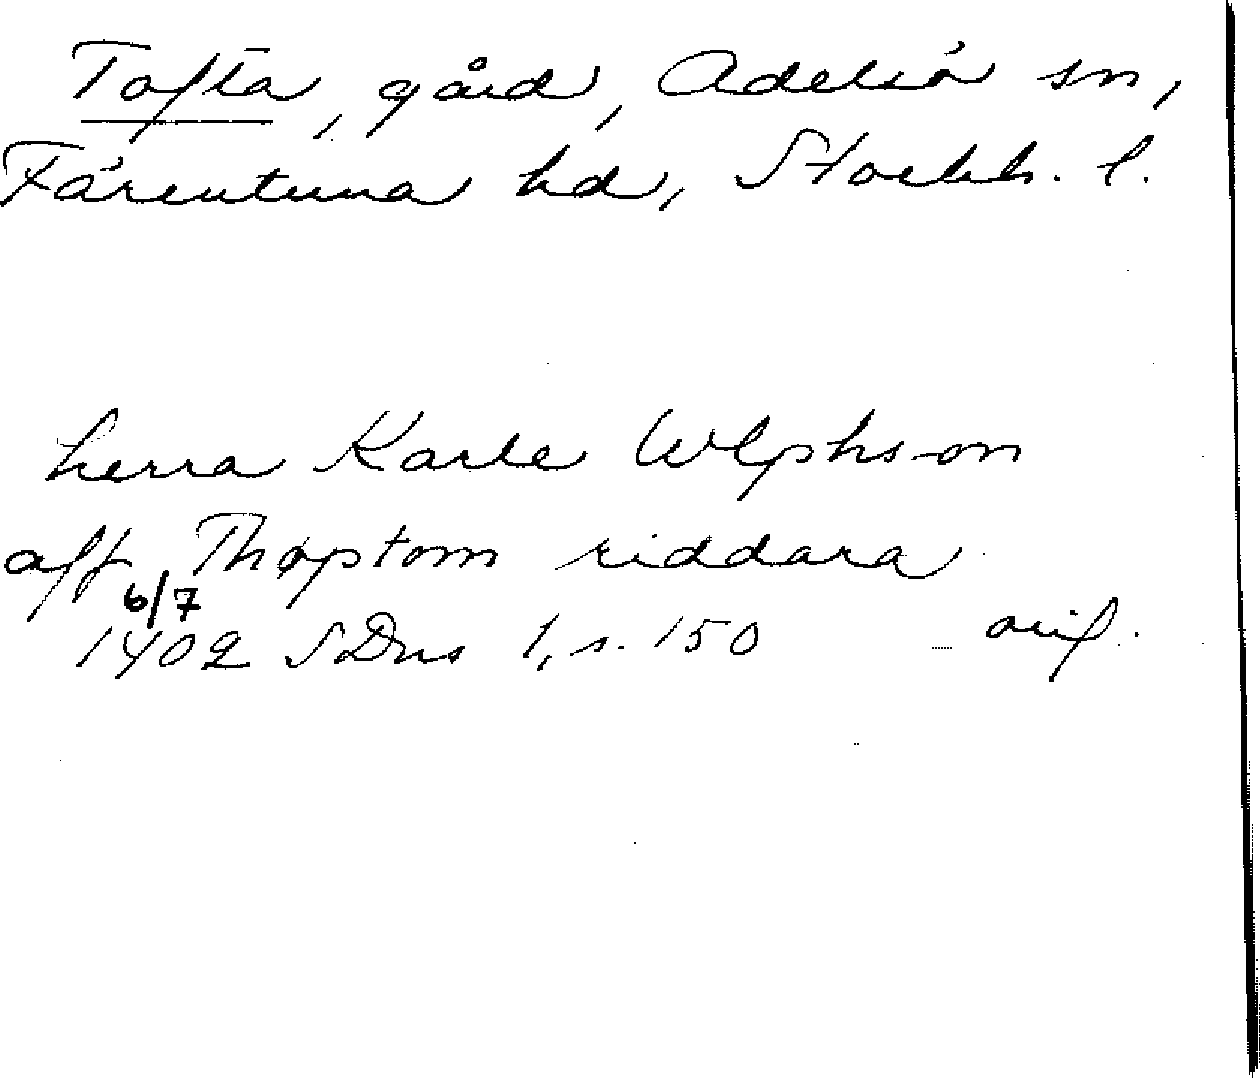 Tofta, gård, Adelsö sn,
Färentuna hd, Stockh. l.
herra Karle Wlphson
aff Thøptom riddara
6/7
1402 SDns 1, s. 150 orig.